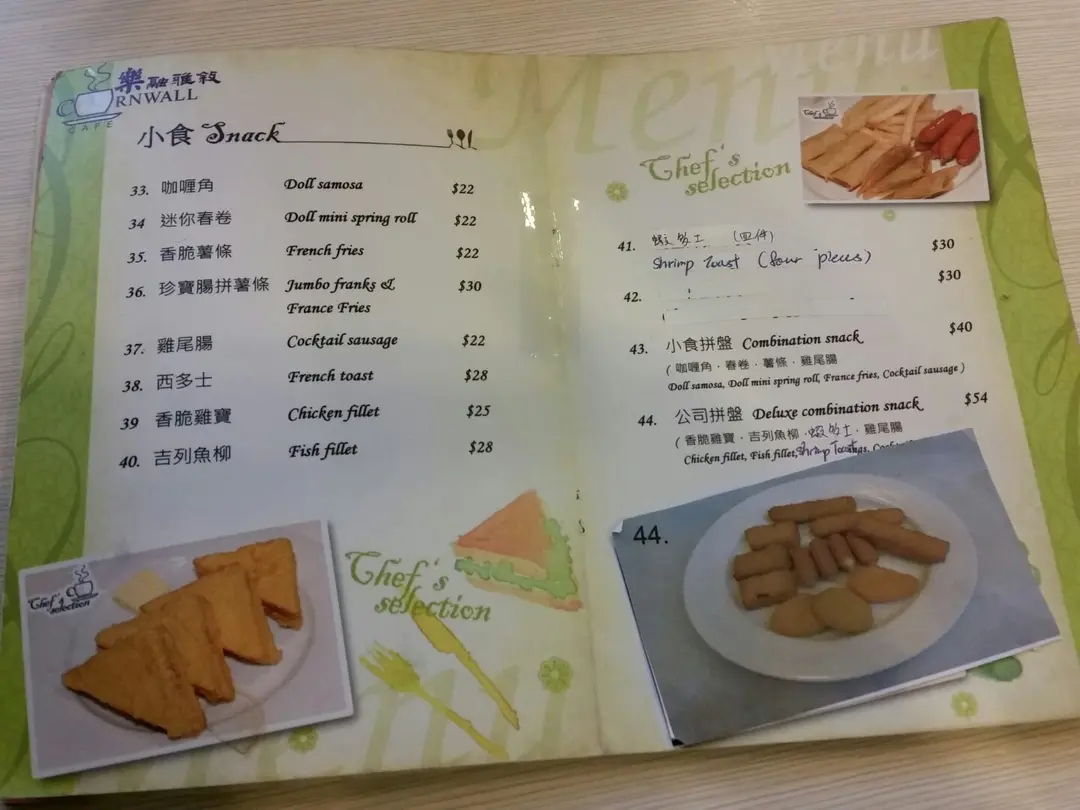 樂融雅敘
RNWALL
CAFE
小食 Snack
33. 咖喱角 Doll samosa $22
34 迷你春卷 Doll mini spring roll $22
35. 香脆薯條 French fries $22
36. 珍寶腸拼薯條 Jumbo franks & $30
France Fries
37. 雞尾腸 Cocktail sausage $22
38. 西多士 French toast $28
39 香脆雞寶 Chicken fillet $25
40. 吉列魚柳 Fish fillet $28
Chef's
selection
Chef's
selection
Menu
Menu
menu
Chef's
selection
41. 蝦多士 (四件) $30
Shrimp Toast (four pieces)
42. $30
43. 小食拼盤 Combination snack $40
(咖喱角．春卷．薯條．雞尾腸
Doll samosa, Doll mini spring roll, France fries, Cocktail sausage )
44. 公司拼盤 Deluxe combination snack $54
(香脆雞寶．吉列魚柳．蝦多士．雞尾腸
Chicken fillet, Fish fillet, Shrimp Toast
44.